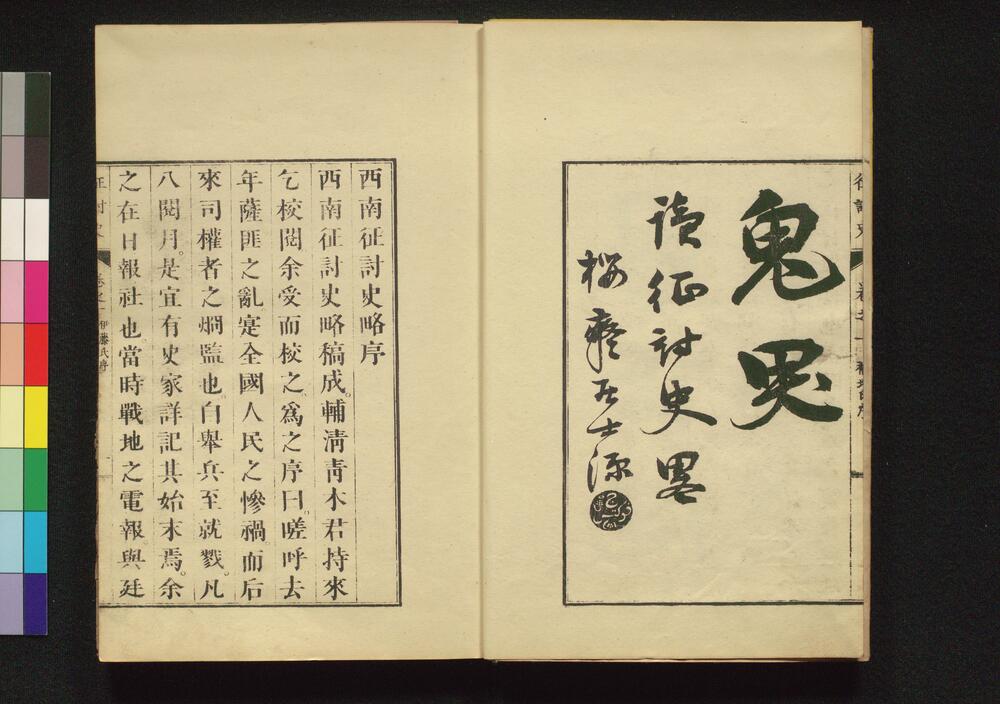 鬼哭
讀征討史畧
櫻癡居士源
西南征討史略序
西南征討史略稿成。輔淸靑木君持來
乞校閲余受而校之。爲之序曰。嗟呼去
年薩匪之亂寔全國人民之慘禍。而后
來司權者之烱監也。自舉兵至就戮。凡
八閲月。是宜有史家詳記其始末焉。余
之在日報社也。當時戰地之電報。與廷
征討史 卷之一 伊藤氏專